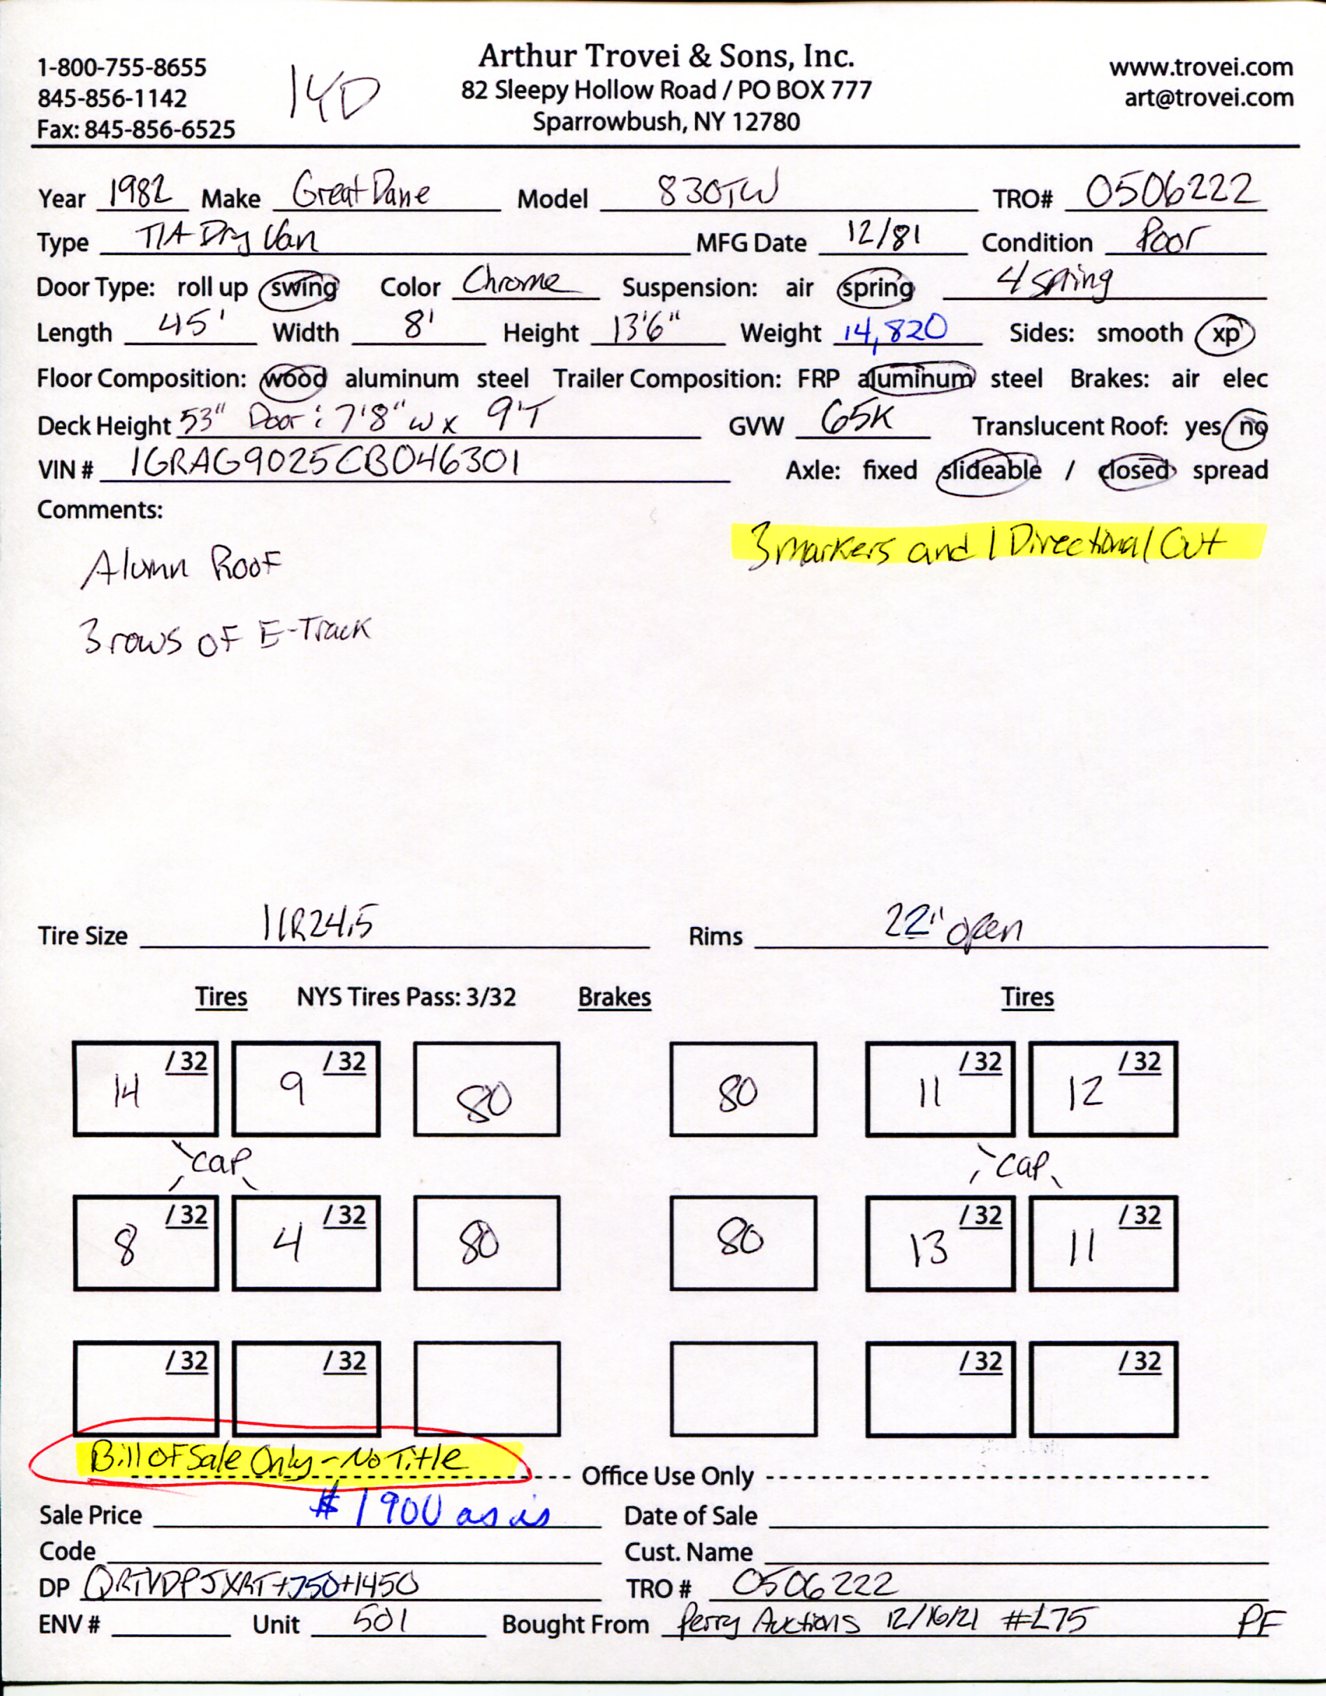 1-800-755-8655
845-856-1142
Fax: 845-856-6525
14D
Arthur Trovei & Sons, Inc.
82 Sleepy Hollow Road / PO BOX 777
Sparrowbush, NY 12780
www.trovei.com
art@trovei.com
Year 1982 Make Great Dane Model 830TW TRO# 0506222
Type T/A Dry Van MFG Date 12/81 Condition Poor
Door Type: roll up swing Color Chrome Suspension: air spring 4 spring
Length 45' Width 8' Height 13'6" Weight 14,820 Sides: smooth xp
Floor Composition: wood aluminum steel Trailer Composition: FRP aluminum steel Brakes: air elec
Deck Height 53" Door: 7'8" W x 9'T GVW 65K Translucent Roof: yes no
VIN # 1GRAG9025CB046301 Axle: fixed slideable / closed spread
Comments:
3 markers and 1 Directional Out
Alumn Roof
3 rows of E-Track
Tire Size 11R24.5 Rims 22" open
Tires NYS Tires Pass: 3/32 Brakes Tires
14 /32 9 /32 80 80 11 /32 12 /32
cap cap
8 /32 4 /32 80 80 13 /32 11 /32
/32 /32 /32 /32
Bill of Sale Only - No Title
Office Use Only
Sale Price $1900 as is Date of Sale
Code Cust. Name
DP QRTVDPJXRT+750+1450 TRO # 0506222
ENV # Unit 501 Bought From Perry Auctions 12/16/21 #L75 PF